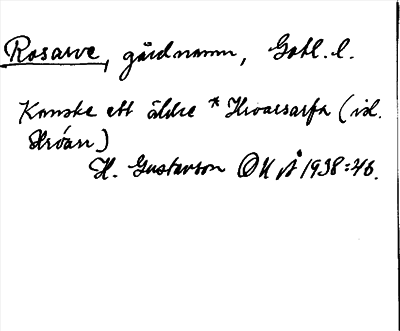 Rosarve, gårdnamn, Gotl. l.
Kanske ett äldre * Hroarsarfa (isl.
Hróarr)
H. Gustavson ONÅ 1938:46.